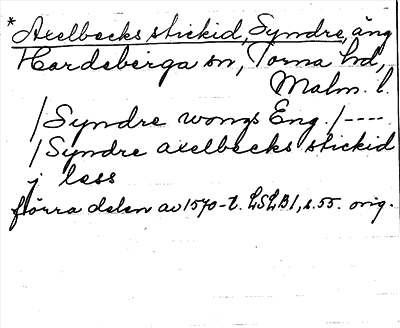 * Axelbecks stickid, Syndre, äng
Hardeberga sn, Torna hd,
Malm. l.
/Syndre wongs Eng./----
/Syndre axelbecks stickid
j less
förra delen av 1570-t. LSLB1, s.55. orig.